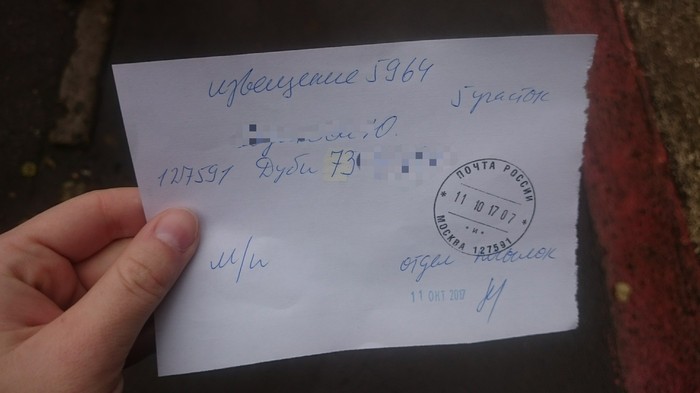 извещение 5964
5 участок
Ю.
127591 Дуби 73
ПОЧТА РОССИИ
11 10 17 07
* И *
МОСКВА 127591
м/п
отдел посылок
11 ОКТ 2017